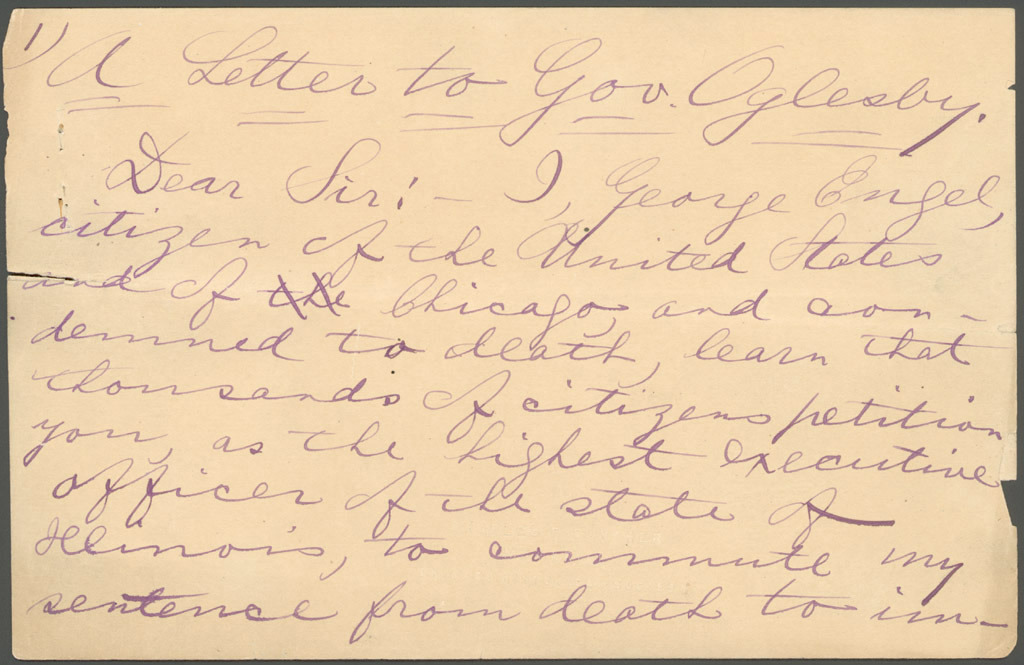 1)
A Letter to Gov. Oglesby.
Dear Sir! – I, George Engel,
citizen of the United States
and of the Chicago, and con-
demned to death, learn that
thousands of citizens petition
you, as the highest executive
officer of the state of
Illinois, to commute my
sentence from death to im-